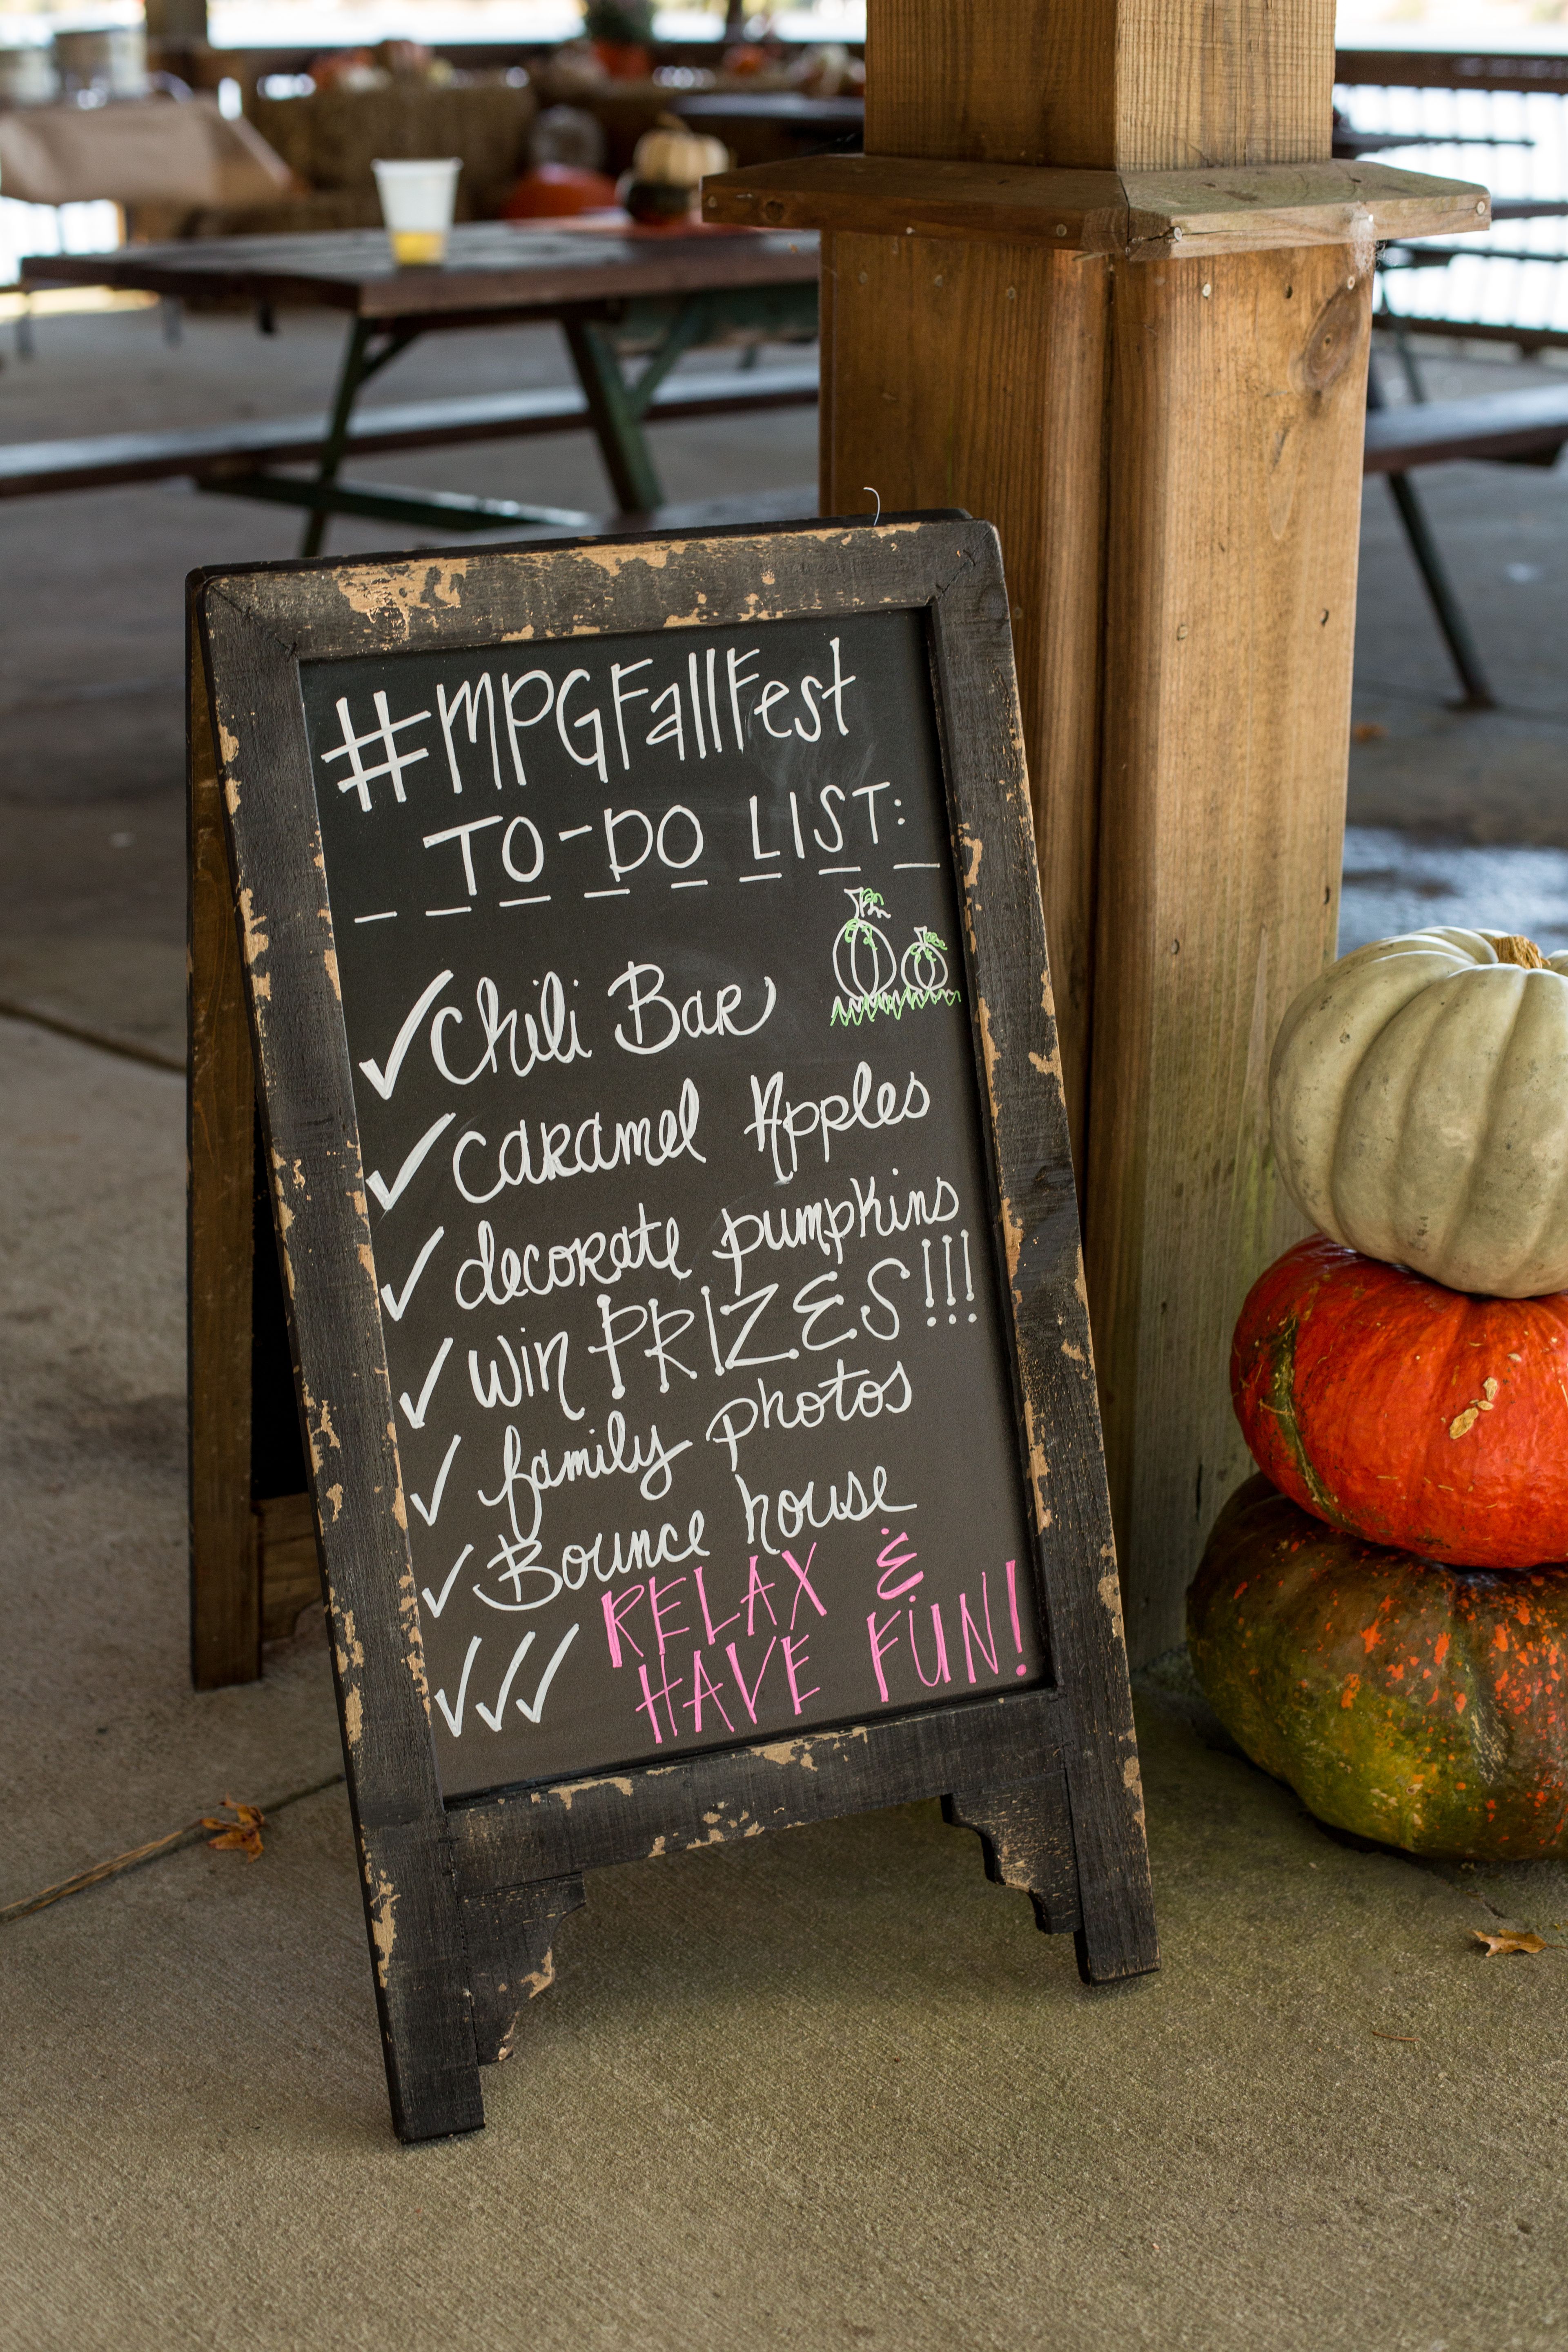 #MPGFallFest
TO-DO LIST:
✓ Chili Bar
✓ Caramel Apples
✓ decorate pumpkins
✓ win PRIZES!!!
✓ family photos
✓ Bounce house
✓✓✓ RELAX &
HAVE FUN!